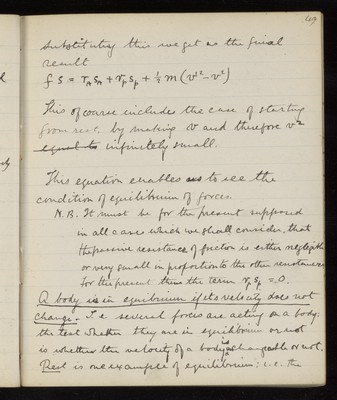 49
substituting this we get as the final
result
f S = r_n s_n + r_p s_p + ½ m (v² - v²)
This of course includes the case of starting
from rest by making v and therefore v²
equal to infinitely small.
This equation enables us to see the
condition of equilibrium of forces
N.B. It must be for the present supposed
in all cases which we shall consider, that
the passive resistance of friction is either negligible
or very small in proportion to the other resistances
for the present then the term r_p s_p = 0.
A body is in equilibrium if its velocity does not
change. I.e. several forces are acting on a body:
the test whether they are in equilibrium or not
is whether the velocity of a body is changeable or not.
Rest is one example of equilibrium; i.e. the